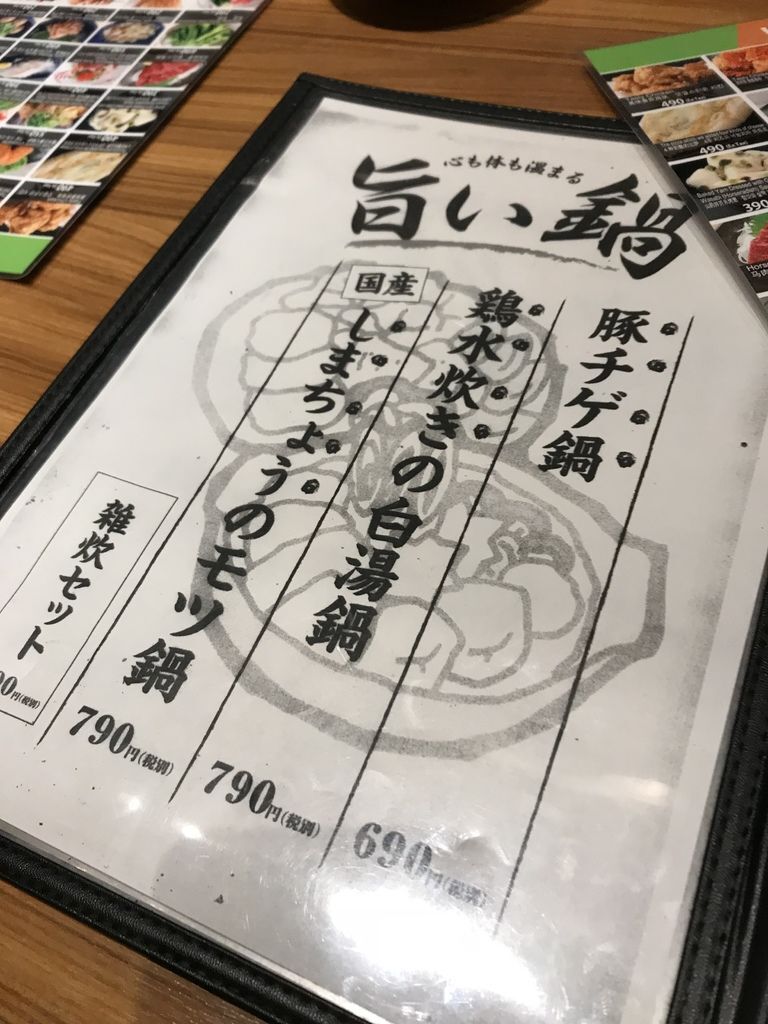 心も体も温まる
旨い鍋
豚チゲ鍋
690円(税別)
鶏水炊きの白湯鍋
790円(税別)
国産
しまちょうのモツ鍋
790円(税別)
雑炊セット
円(税別)
490
490
Baked Yam Dressed with
390